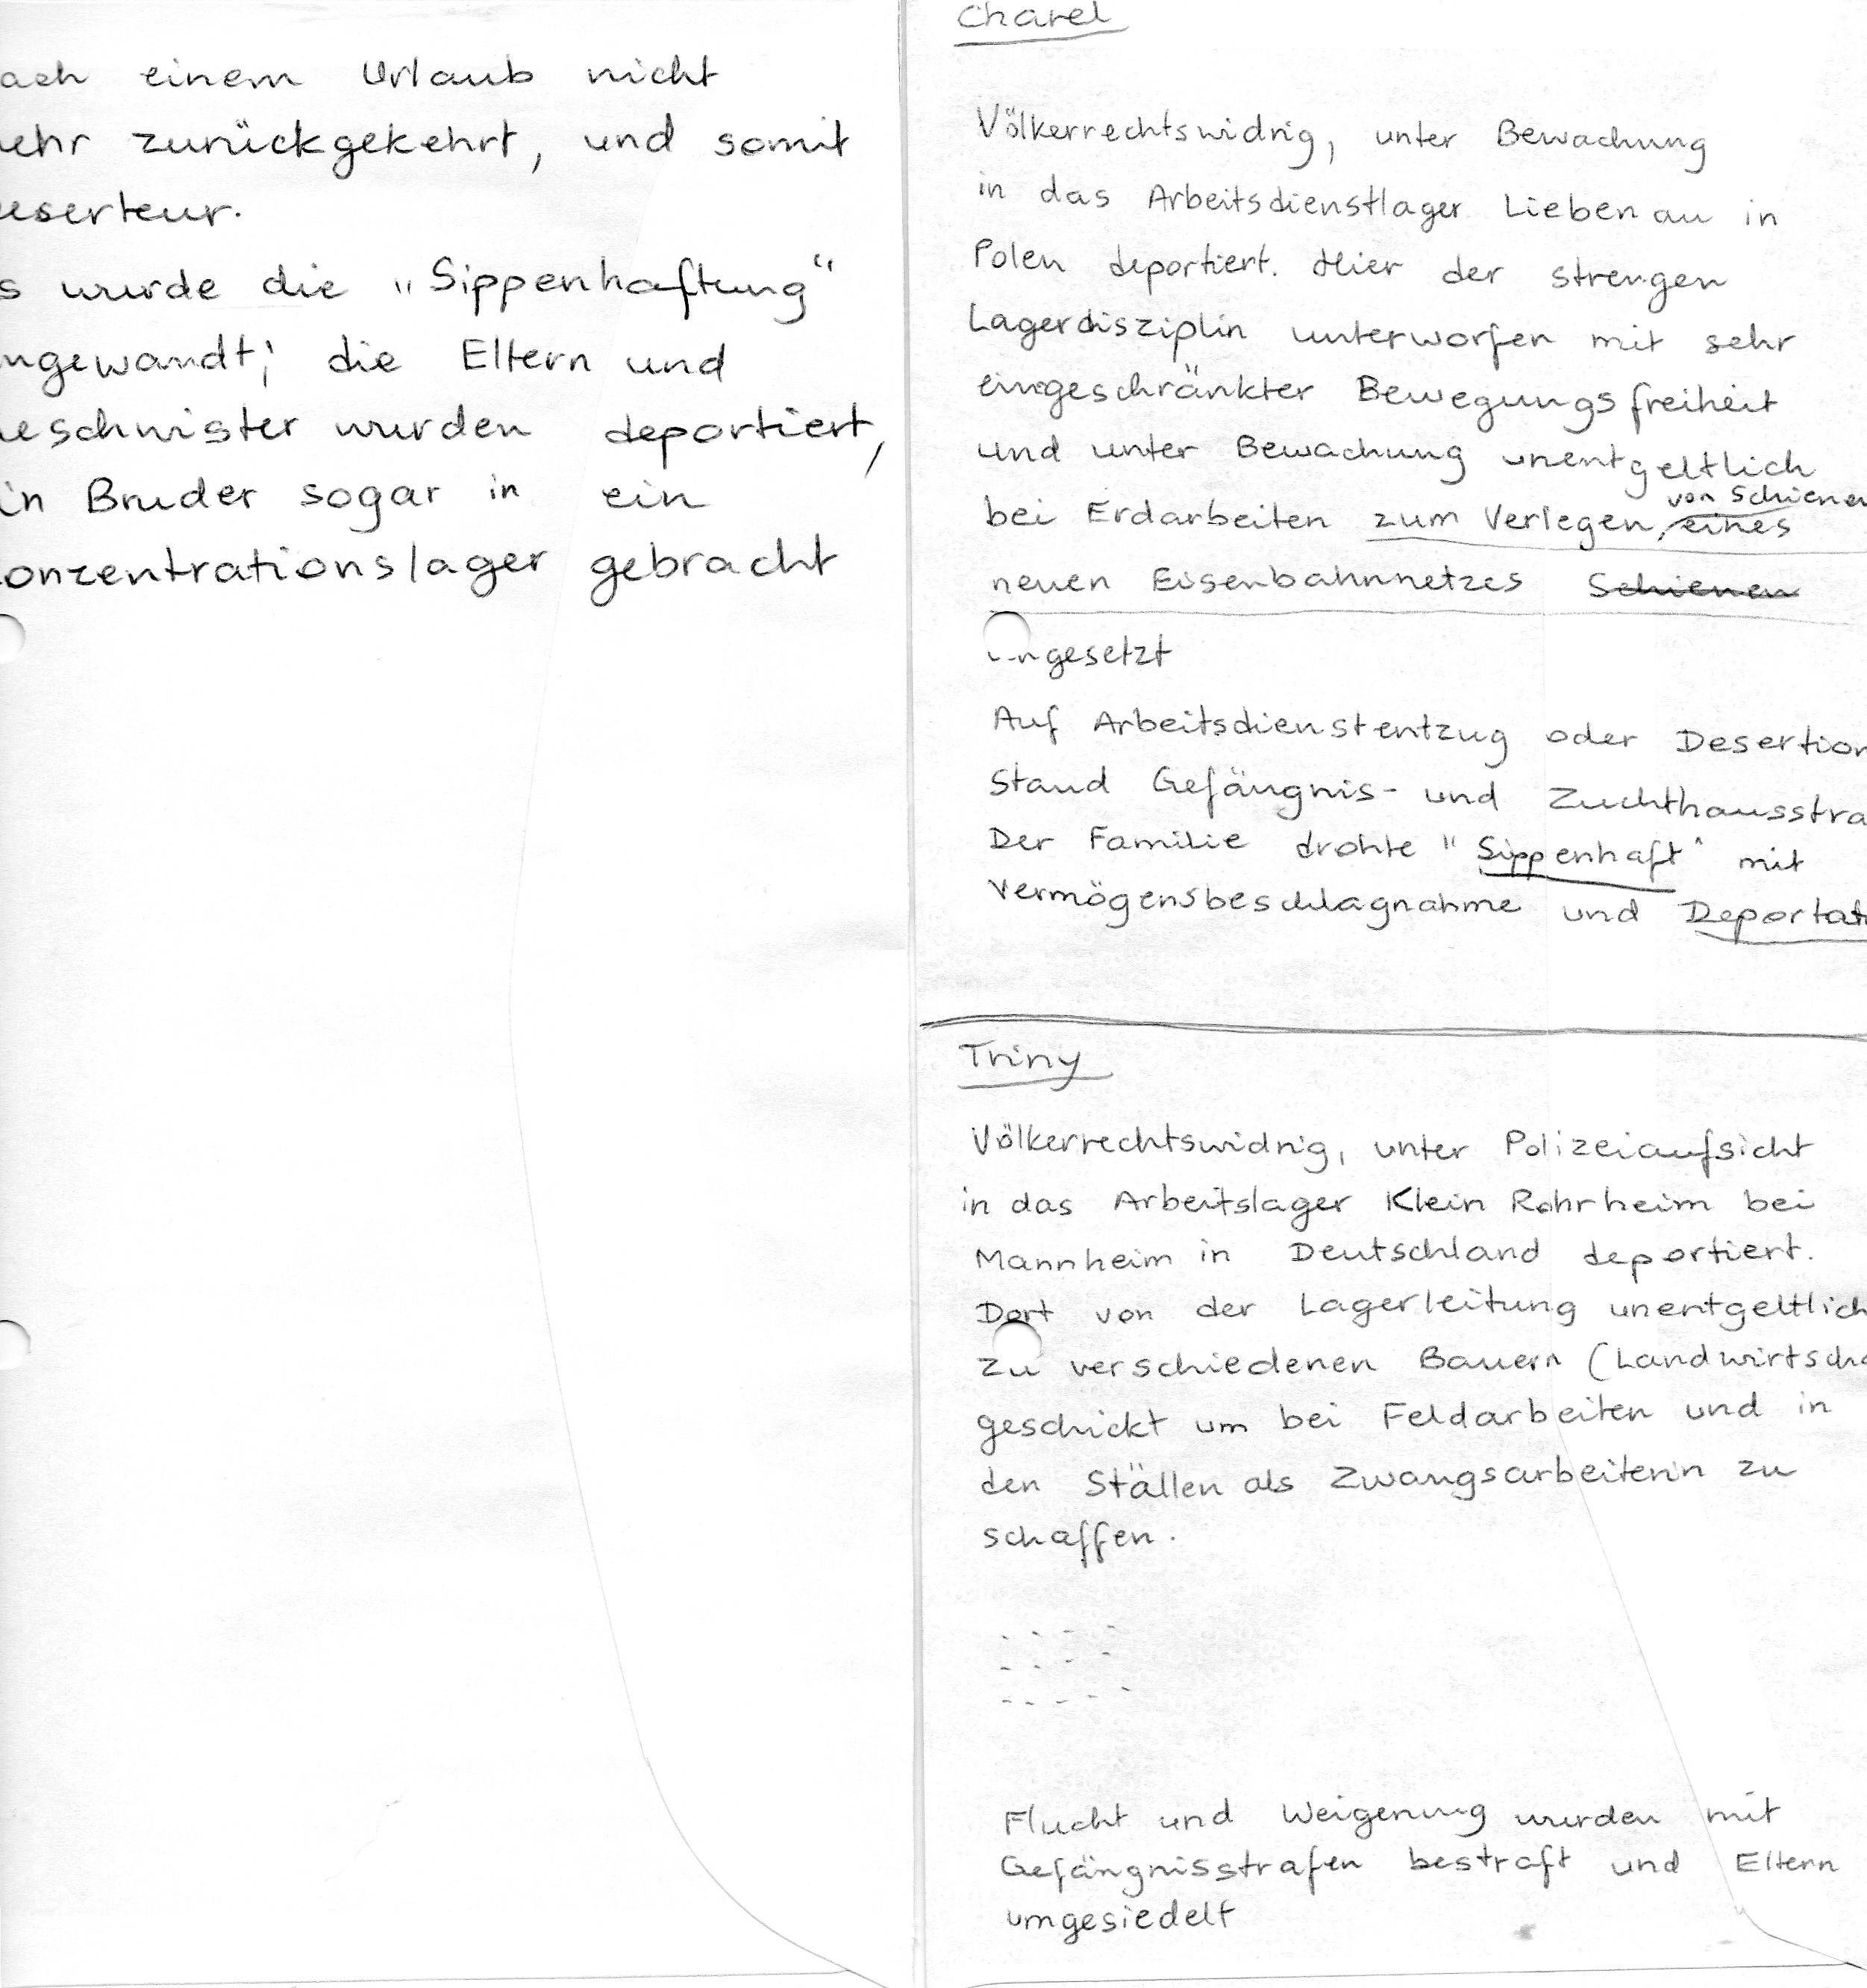 ach einem Urlaub nicht
ehr zurückgekehrt, und somit
eserteur.
s wurde die „Sippenhaftung“
ngewandt; die Eltern und
eschwister wurden deportiert,
in Bruder sogar in ein
onzentrationslager gebracht
Charel
Völkerrechtswidrig, unter Bewachung
in das Arbeitsdienstlager Liebenau in
Polen deportiert. Hier der strengen
Lagerdisziplin unterworfen mit sehr
eingeschränkter Bewegungsfreiheit
und unter Bewachung unentgeltlich
von Schienen
bei Erdarbeiten zum Verlegen, eines
neuen Eisenbahnnetzes Schienen
ingesetzt
Auf Arbeitsdienstentzug oder Desertion
stand Gefängnis- und Zuchthausstra
Der Familie drohte "Sippenhaft" mit
Vermögensbeschlagnahme und Deportat
Triny
Völkerrechtswidrig, unter Polizeiaufsicht
in das Arbeitslager Klein Rohrheim bei
Mannheim in Deutschland deportiert.
Dort von der Lagerleitung unentgeltlich
zu verschiedenen Bauern (Landwirtscha
geschickt um bei Feldarbeiten und in
den Ställen als Zwangsarbeiterin zu
schaffen.
Flucht und Weigerung wurden mit
Gefängnisstrafen bestraft und Eltern
umgesiedelt